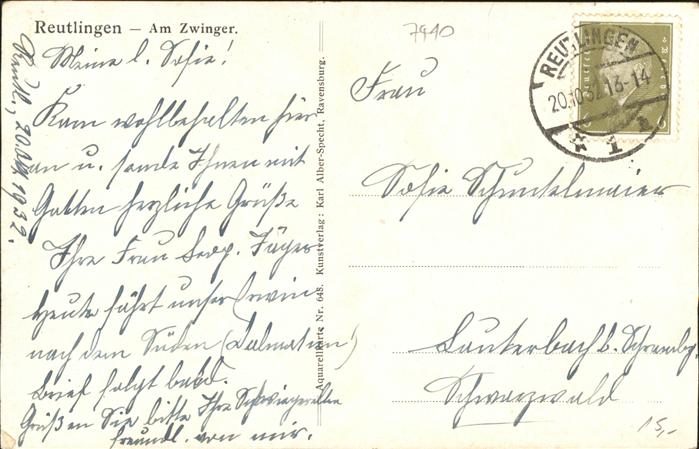 Reutlingen – Am Zwinger.
7910
Reutl., 20. Okt. 1932.
Meine l. Sofie!
Kam wohlbehalten hier
an u. sende Ihnen mit
Gatten herzliche Grüße
Ihre Frau Jäger
Heute fährt unser Erwin
nach dem Süden (Dalmatien)
Brief folgt bald.
Grüßen Sie bitte Ihre Schwiegereltern
freundl. von mir.
Aquarellkarte Nr. 648. Kunstverlag: Karl Alber-Specht, Ravensburg.
REUTLINGEN
20.10.32.13-14
1
Frau
Sofie Schuntelmaier
Lauterbach b. Schrambg.
Schwarzwald
15,-